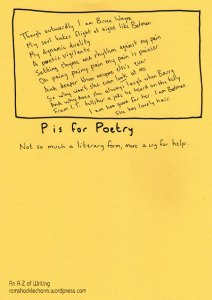 Though outwardly I am Bruce Wayne
My soul takes flight at night like Batman
My dynamic duality
A poetic vigilante
Setting rhyme and rhythm against my pain
Oh painy painy pain my pain is painier
And deeper than anyone else's ever
So why won't she even look at me
And why does she always laugh when Barry
From I.T. tells her a joke he heard on the telly
I not too good for her I am Batman.
She has lovely hair.
P is for Poetry
Not so much a literary form, more a cry for help.
An A-Z of Writing
ramshacklecharm.wordpress.com